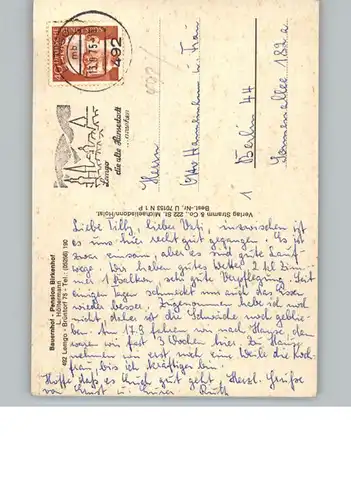 492
Lemgo
die alte Hansestadt
Herrn
Otto Hannemann u. Frau
1 Berlin 44
Sonnenallee 182a
Verlag Stramm & Co., 222 St. Michaelisdonn/Holst.
Best.-Nr.: U 70153 N 1 P
Bauernhof - Pension Birkenhof
L. Höltemann
492 Lemgo - Brüntorf 75 - Tel.: (05266) 190
Liebe Tilly, lieber Vati, inzwischen ist
es uns hier recht gut gegangen. Es ist
zwar einsam, aber es sind gute Lauf
wege. Wir haben gutes Wetter, 2 kl. Zim-
mer 1 Balkon, sehr gute Verpflegung. Seit
einigen Tagen schmeckt mir auch das Essen
wieder besser. Zugenommen habe ich noch
nicht, daher ist die Schwäche noch geblie-
ben. Am 17.9. fahren wir nach Hause, da
waren wir fast 3 Wochen hier. Zu Hause
nehmen wir erst noch eine Weile die Koch-
frau, bis ich kräftiger bin.
Hoffe daß es Euch gut geht. Herzl. Grüße
von Ernst u. Eurer Ruth